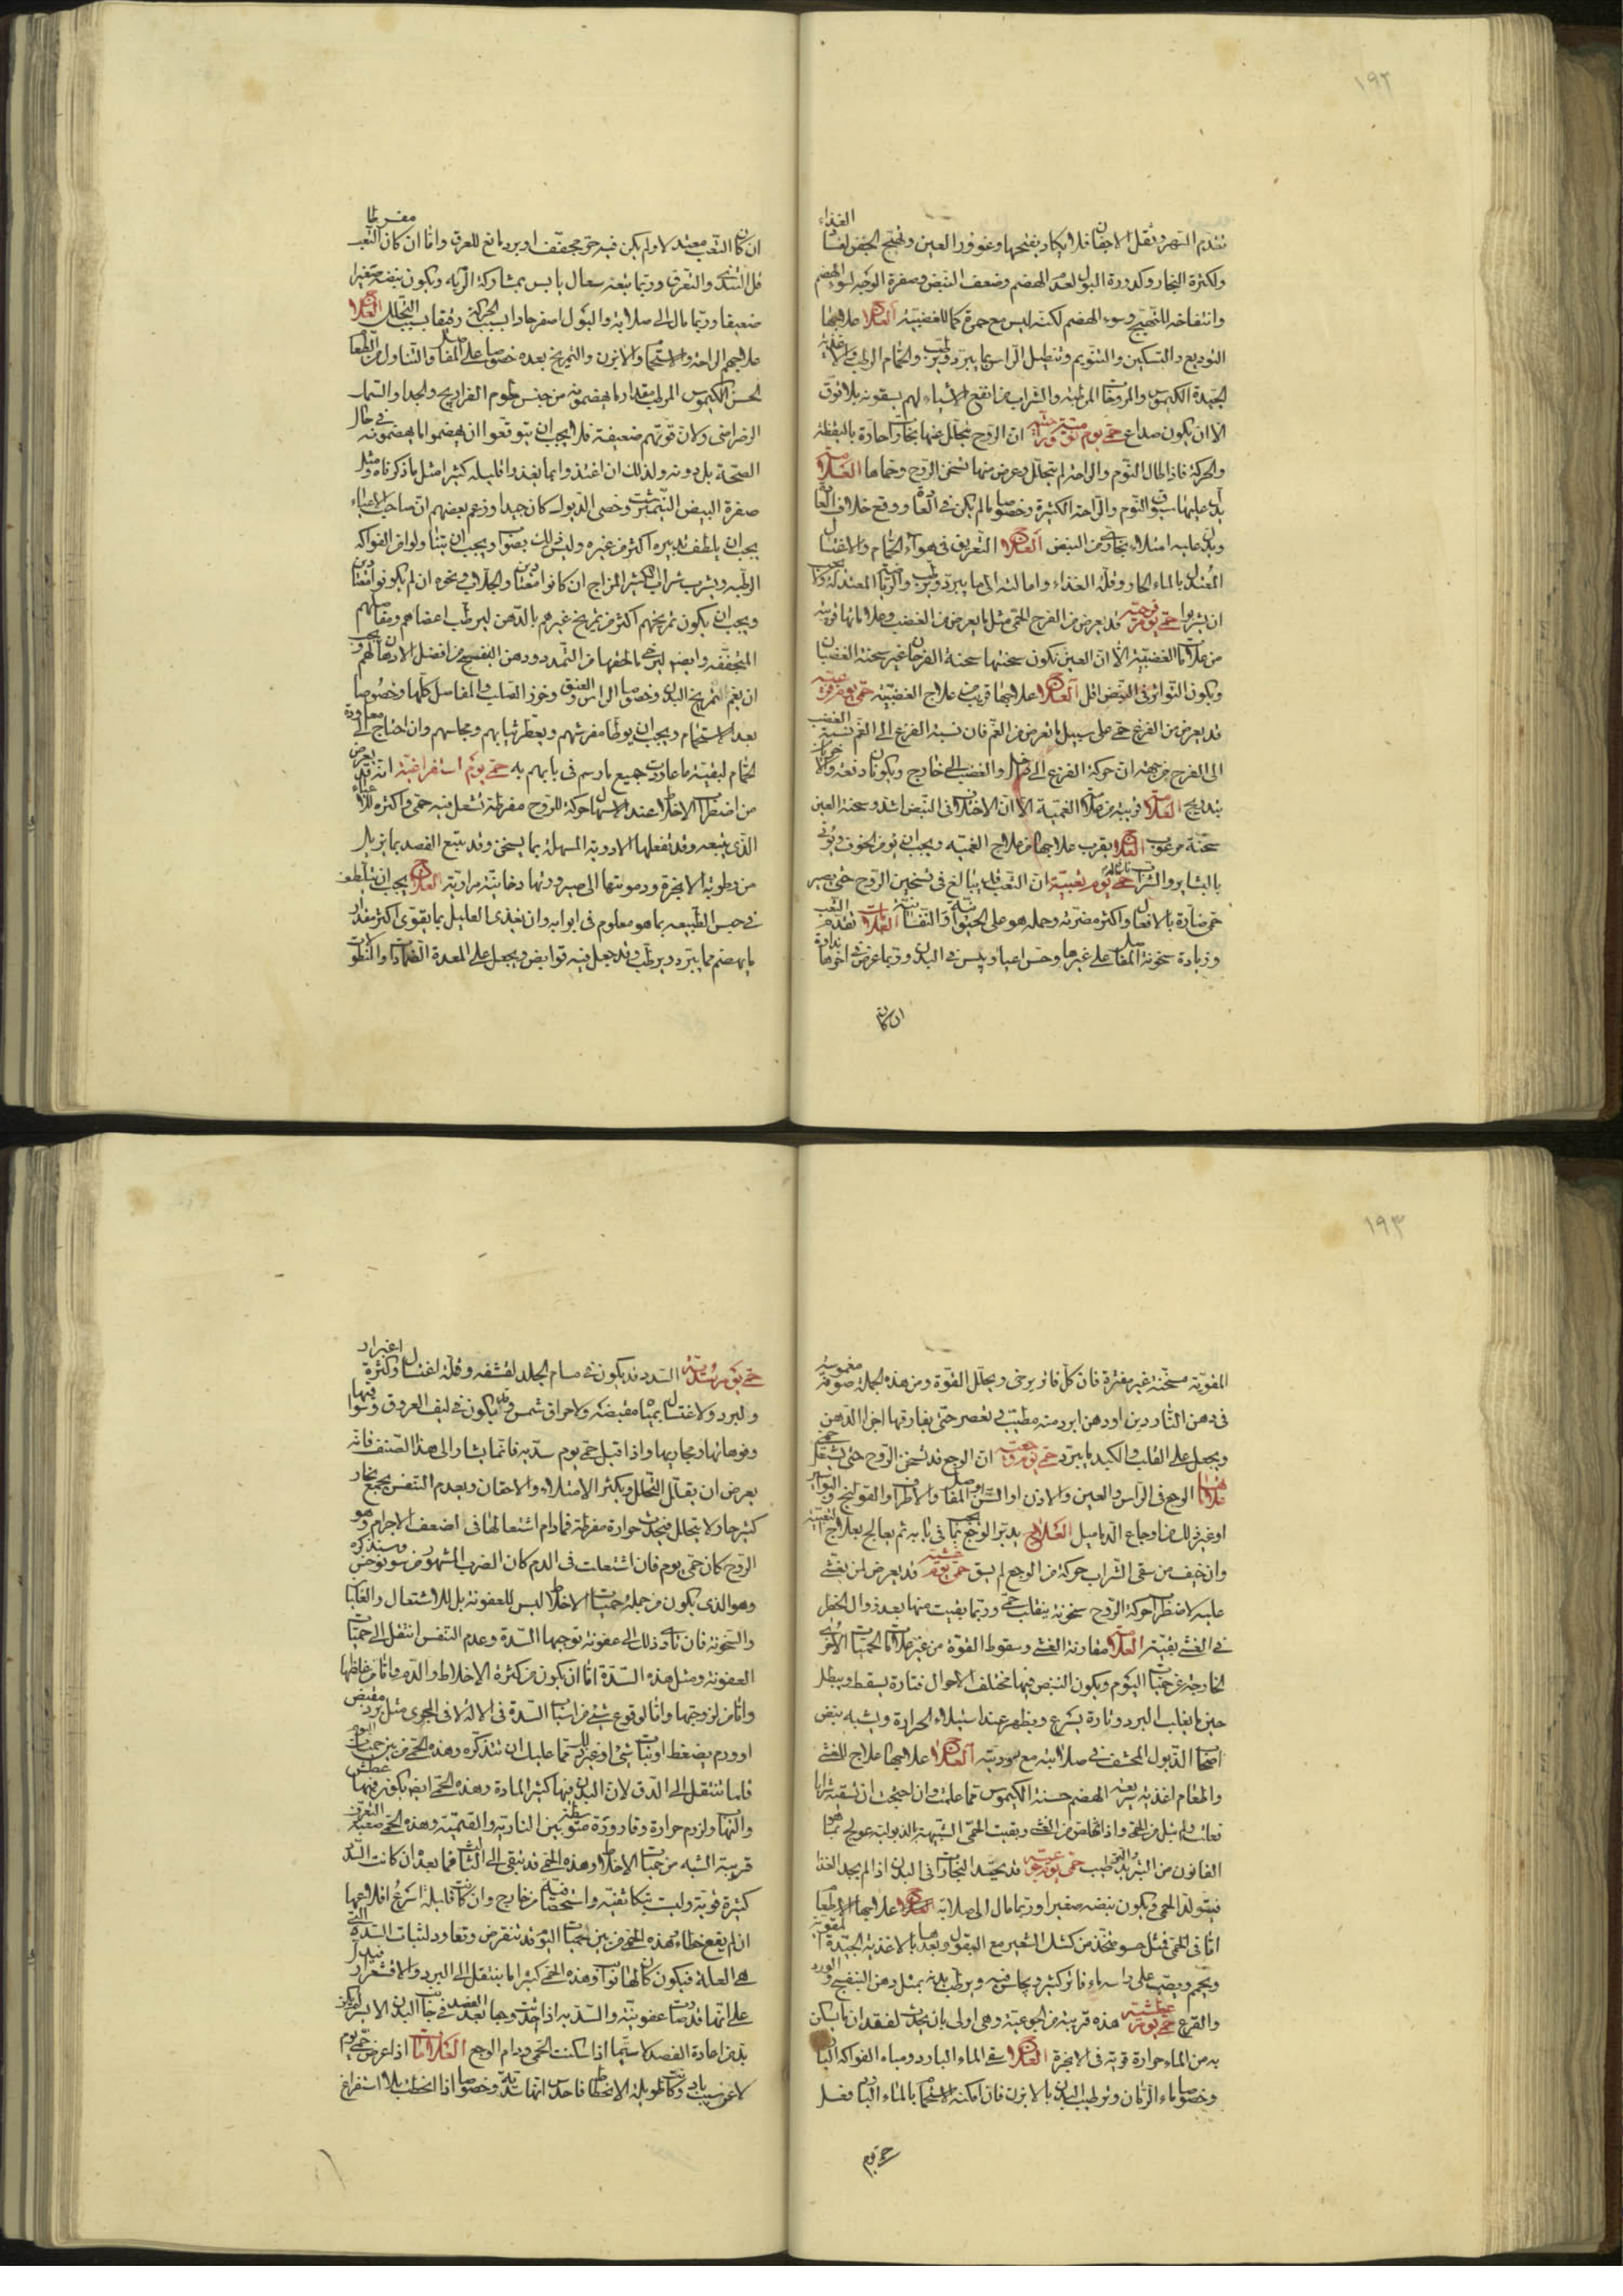 ١٩٢
الغذاء
تقدم السهر وثقل الاجفان فلا يكاد يفتحها وغوور العين وتهيج الجفن لفساد
ولكثرة البخار وكدورة البول لعدم الهضم وضعف النبض وصفرة الوجه لسوء الهضم
وانتفاخه للتهيج وسوء الهضم لكنه ليس مع حمرة كما للغضبية العلاج علاجها
التوديع والتسكين والتنويم وتنطيل الراس بما يبرد ويرطب والحمام الرطب والاغذية
الجيدة الكيموس والمروخات المرطبة والشراب من انفع الاشياء لهم يسقونه بلا توق
الا ان يكون صداع حمى يوم نومية راحية ان الروح يتحلل عنها بخارات حارة باليقظة
والحركة فاذا طال النوم والراحة لم يتحلل وعرض منها تسخن الروح وحماها العلامات
يدل عليها سبوق النوم والراحة الكثيرة وخصوصا ما لم يكن في العادة ووقع خلاف العادة
ويدل عليه امتلاء بخاري من النبض العلاج التعريق في هواء الحمام والاغتسال
المعتدل بالماء الحار وقلة الغذاء وامالته الى ما يبرد ويرطب والرياضة المعتدلة ويجب
ان يشربوا حمى يوم فرحية قد يعرض من الفرح الحمى مثل ما يعرض من الغضب وعلاماتها قريبة
من علامات الغضبية الا ان العين تكون سحنتها سحنة الفرحان غير سحنة الغضبان
ويكون التواتر في النبض اقل العلاج علاجها قريب من علاج الغضبية حمى يوم فزعية
قد يعرض من الفزع حمى على سبيل ما يعرض من الغم فان نسبة الفزع الى الغم نسبة الغضب
الى الفرح من جهة ان حركة الفزع الى داخل والغضب الى خارج ويكونان دفعة والآخران
بتدريج العلامات قريبة من علامات الغمية الا ان الاختلاف في النبض اشد وسحنة العين
سحنة مرعوب العلاج يقرب علاجها من علاج الغمية ويجب ان يؤمن الخوف ويؤتى
بالبشاير والشراب نافع له حمى يوم تعبية ان التعب قد يبالغ في تسخين الروح حتى يصير
حمى ضارة بالافعال واكثر مضرته وحمله هو على الحيوانية والنفسانية العلامات تقدم التعب
وزيادة سخونة المفاصل على غيرها وحس اعياء ويبس في البدن وربما عرض في آخرها نداوة
ان كان
ان كان التعب معتدلا ولم يكن فيه حر مجفف او برد مانع للعرق واما ان كان التعب مفرطا
قل التندي والتعرق وربما يتبعه سعال يابس بمشاركة الرية ويكون نبضه صغيرا
ضعيفا وربما مال الى صلابة والبول اصفر حادا بسبب الحركة رقيقا بسبب التحلل العلاج
علاجهم الراحة والاستحمام والابزن والتمريخ بعده خصوصا على المفاصل والتناول من الطعام
الحسن الكيموس المرطب مقدار ما يهضمونه من جنس لحوم الفراريج والجداء والسمك
الرضراضي ولان قوتهم ضعيفة فلا يجب ان يتوقعوا ان يهضموا ما يهضمونه في حال
الصحة بل دونه ولذلك ان اغتذوا بما يغذو قليله كثيرا مثل ما ذكرناه ومثل
صفرة البيض النيمرشت وخصى الديوك كان جيدا وزعم بعضهم ان صاحب الاعياء
يجب ان يلطف تدبيره اكثر من غيره وليس ذلك بصواب ويجب ان يتناولوا من الفواكه
الرطبة ويشرب شراب كثير المزاج ان كانوا معتادين والجلاب ونحوه ان لم يكونوا معتادين
ويجب ان يكون تمريخهم اكثر من تمريخ غيرهم بالدهن ليرطب اعضاءهم ومفاصلهم
المتجففة وايضا ليرخي ما لحقها من التمدد ودهن البنفسج من افضل الادهان لهم ويجب
ان يعم التمريخ البدن وخصوصا الراس والعنق وخرز الصلب والمفاصل كلها وخصوصا
بعد الاستحمام ويجب ان يوطأ مفرشهم ويعطر ثيابهم ومجالسهم وان احتاج الى معاودة
الحمام لبقية ما عاودت جميع ما رسم في بابهم به حمى يوم استفراغية انه قد يعرض
من اضطراب الاخلاط عند الاسهال حركة للروح مفرطة تشعل فيه حمى واكثره للاعياء
الذي يتبعه وقد تفعلها الادوية المسهلة بما يسخن وقد يتبع الفصد بما يزيل
من رطوبة الابخرة ودمويتها الى صيرورتها دخانية مرارية العلاج يجب ان يتلطف
في حبس الطبيعة بما هو معلوم في ابوابه وان يغذى العليل بما يقوى اكثر مقدار
ما يهضم مما يبرد ويرطب وقد جعل فيه قوابض ويجعل على المعدة الضمادات والنطولات
١٩٣
المقوية مسخنة غير مفترة فان كل فاتر يرخي ويحلل القوة ومن هذه الجملة صوفة مغموسة
في دهن الناردين او دهن ابرد منه مطيب تعصر حتى يفارقها اجزاء الدهن
ويجعل على القلب والكبد ما يبرد حمى يوم وجعية ان الوجع قد يسخن الروح حتى يشتعل حمى
الوجع في الراس والعين والاذن او السن او المفاصل والاطراف والقولنج والبواسير
او غير ذلك من اوجاع الدماميل العلاج يدبر الوجع بما يجب في بابه ثم يعالج بعلاج التعبية
وان خيف من سقي الشراب حركة من الوجع لم يسق حمى يوم غشية قد يعرض لمن يغشى
عليه لاضطراب حركة الروح سخونة ينقلب حمى وربما بقيت منها بعد زوال الخطر
في الغشي بقية العلامات مقارنة الغشي وسقوط القوة من غير علامات الحميات الاخرى
الخارجة عن حميات اليوم ويكون النبض فيها مختلف الاحوال فتارة يسقط ويبطل
حين ما يغلب البرد وتارة يسرع ويظهر عند استيلاء الحرارة ويشبه نبض
اصحاب الذبول المحشف في صلابته مع دودية العلاج علاجها علاج الغشي
والطعام اغذية سريعة الهضم حسنة الكيموس مما علمت وان احتجت ان تسقيه شرابا
فعلت ولم تبل من الحمى واذا خلص من الغشي وبقيت الحمى الشبيهة بالذبولية عولج بما هو
القانون من التبريد والترطيب حمى يوم جوعية قد يحتد البخارات في البدن اذا لم يجد الغذاء
فيتولد الحمى ويكون نبضه صغيرا وربما مال الى صلابة العلاج علاجها الاطعام
اما في الحمى فمثل حسو متخذ من كشك الشعير مع البقول وبعدها بالاغذية الجيدة المقوية
ويحمم ويصب على راسه ماء فاتر كثير ويجلس فيه ويرطب بدنه بمثل دهن البنفسج والورد
والقرع حمى يوم عطشية هذه قريبة من الجوعية وهي اولى بان يحدث لفقدان ما يسكن
به من الماء حرارة قوية في الابخرة العلاج سقي الماء البارد ومياه الفواكه الباردة
وخصوصا ماء الرمان وترطيب البدن بالابزن فان امكنه الاستحمام بالماء البارد فعل
حمى يوم
حمى يوم سددية السدد قد يكون في مسام الجلد لقشفه وقلة اغتسال وكثرة اغبرار
ولبرد ولاغتسال بمياه مقبضة ولاحراق شمس وقد يكون في ليف العروق وسواقيها
وفوهاتها ومجاريها واذا قيل حمى يوم سددية فانما يشار الى هذا الصنف فانه
يعرض ان يقل التحلل ويكثر الامتلاء والاحتقان ويعدم التنفس فيجتمع بخار
كثير حار لا يتحلل فيحدث حرارة مفرطة فما دام اشتعالها في اضعف الاجرام وهو
الروح كان حمى يوم فان اشتعلت في الدم كان الضرب المشهور من سونوخس وسنذكره
وهو الذي يكون من جملة حميات الاخلاط ليس للعفونة بل للاشتعال والغليان
والسخونة فان تأدى ذلك الى عفونة توجبها السدة وعدم التنفس انتقل الى حميات
العفونة ومثل هذه السدة اما ان يكون من كثرة الاخلاط والدم واما من غلظها
واما من لزوجتها واما لوقوع شيء من اسباب السدة في الآلة لا في المجرى مثل برد مقبض
او ورم يضغط او نبات شيء او غير ذلك مما عليك ان تتذكره وهذه الحمى من بين حميات اليوم
قلما تنتقل الى الدق لان البدن فيها كثير المادة وهذه الحمى ايضا يكون فيها عطش
والتهاب ولزوم حرارة وقارورة متوسطة بين النارية والقتمية وهذه الحمى صعبة التعرف
قريبة الشبه من حميات الاخلاط وهذه الحمى قد تبقى الى الثالث فما بعده ان كانت السدد
كثيرة قوية وليست بتكاثفية واستحصافية من خارج وان كانت قليلة اسرع اقلاعها
ان لم يقع خطاء وهذه الحمى من بين حميات اليوم قد تنقرض وتعاود لثبات السدة التي
هي العلة فيكون كان لها نوايب وهذه الحمى كثيرا ما تنتقل الى البرد والاقشعرار فيدل
على انها قد صارت عفونية والسددية اذا حدث وجع بعد الفصد في جانب البدن الايسر لم يكن
بد من اعادة الفصد لا سيما اذا سكنت الحمى ودام الوجع العلامات اذا عرض حمى يوم
لا عن سبب باد وكانت طويلة الانحطاط فاحدس انها سددية وخصوصا اذا انحطت بلا استفراغ